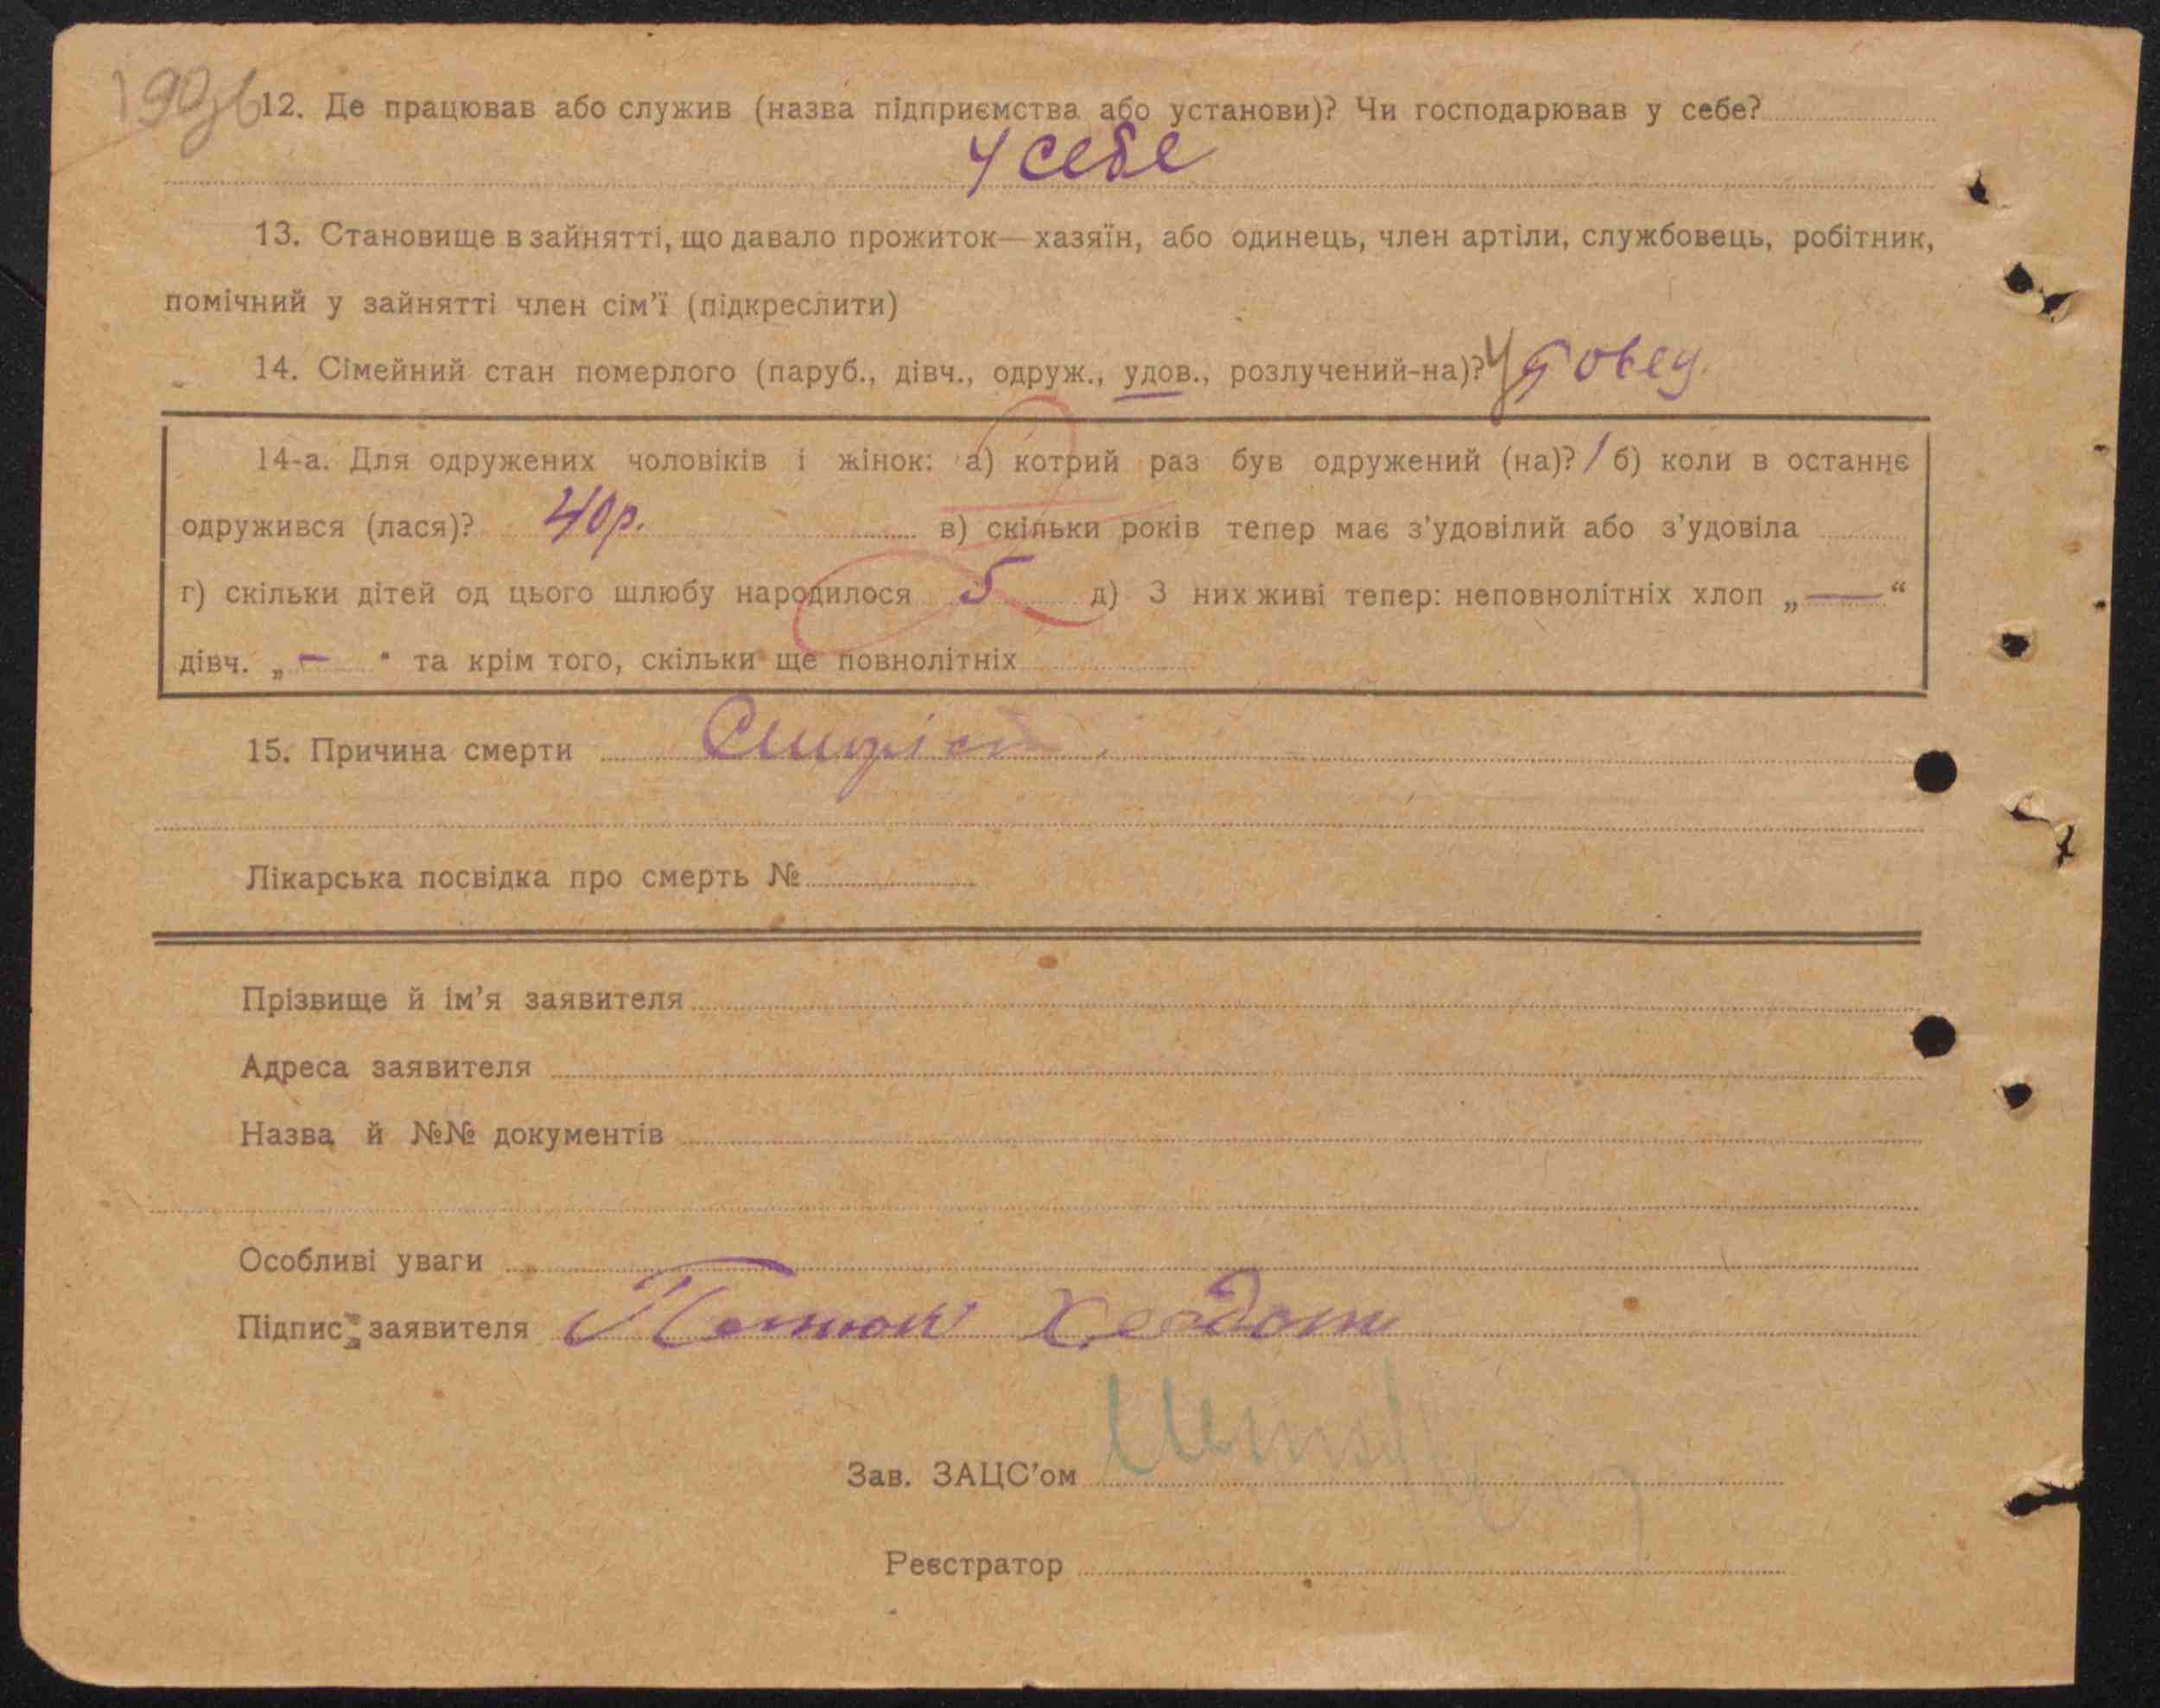 12. Де працював або служив (назва підприємства або установи)? Чи господарював у себе?
У себе
13. Становище в зайнятті, що давало прожиток—хазяїн, або одинець, член артіли, службовець, робітник,
помічний у зайнятті член сім'ї (підкреслити)
14. Сімейний стан померлого (паруб., дівч., одруж., удов., розлучений-на)? Удовец.
14-а. Для одружених чоловіків і жінок: а) котрий раз був одружений (на)? 1 б) коли в останнє
одружився (лася)? 40 р. в) скільки років тепер має з'удовілий або з'удовіла
г) скільки дітей од цього шлюбу народилося 5 д) З них живі тепер: неповнолітніх хлоп „—“
дівч. „—“ та крім того, скільки ще повнолітніх
15. Причина смерти
Лікарська посвідка про смерть №
Прізвище й ім'я заявителя
Адреса заявителя
Назва й №№ документів
Особливі уваги
Підпис заявителя
Зав. ЗАЦС'ом
Реєстратор